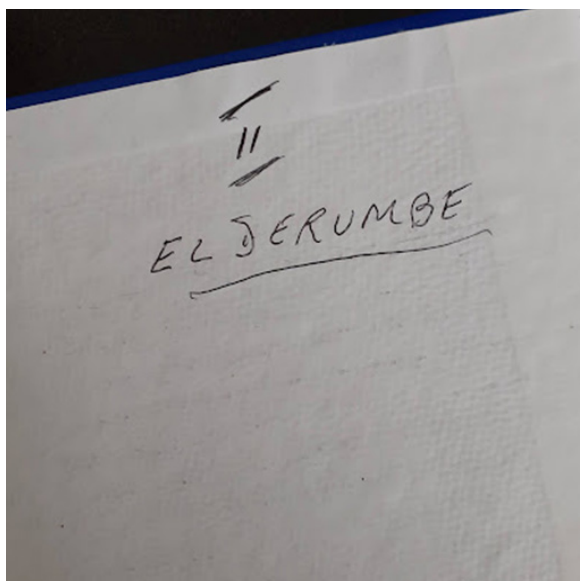 II
EL DERUMBE